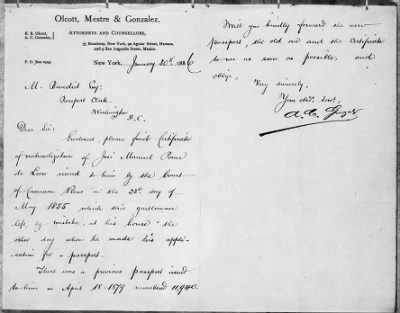 Olcott, Mestre & Gonzalez,
Attorneys and Counsellors,
35 Broadway, New York, 50 Aguiar Street, Havana,
and 5 San Augustin Street, Mexico.
A. C. Gonzalez.
P. O. Box
New York, January 20th 1886
M. Benedict Esq:
Passport Clerk.
Washington
D.C.
Dear Sir:
Enclosed, please find Certificate
of naturalization of José Manuel Ponce
de Leon issued to him by the Court
of Common Pleas on the 28th day of
May 1855 which this gentleman
left, by mistake, at his house the
other day when he made his appli-
cation for a passport.
There was a previous passport issued
to him on April 18-1879 numbered 11,940.
Will you kindly forward the new
passport, the old one and the Certificate
to me as soon as possible, and
oblige.
Very sincerely,
Your obdt. Servt.
A. C. Gonzalez